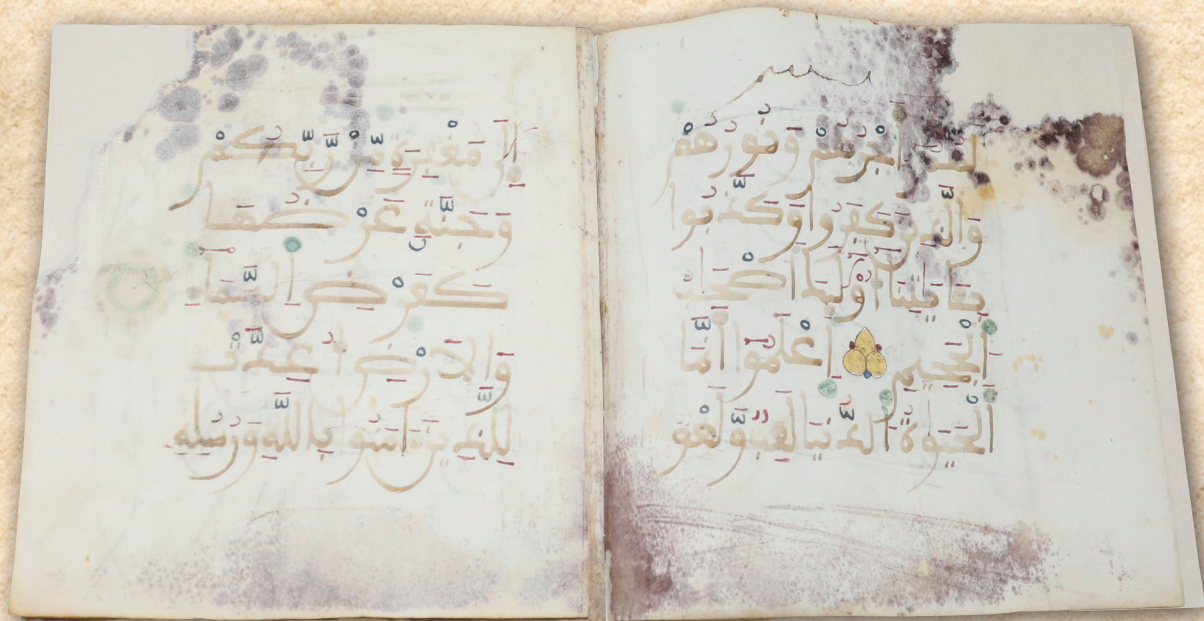 لَهُمْ أَجْرُهُمْ وَنُورُهُمْ
وَالَّذِينَ كَفَرُوا وَكَذَّبُوا
بِـَٔايَٰتِنَا أُوْلَٰئِكَ أَصْحَٰبُ
الْجَحِيمِ اعْلَمُوا أَنَّمَا
الْحَيَوٰةُ الدُّنْيَا لَعِبٌ وَلَهْوٌ
إِلَىٰ مَغْفِرَةٍ مِّن رَّبِّكُمْ
وَجَنَّةٍ عَرْضُهَا
كَعَرْضِ السَّمَاءِ
وَالْأَرْضِ أُعِدَّتْ
لِلَّذِينَ ءَامَنُوا بِاللَّهِ وَرُسُلِهِ